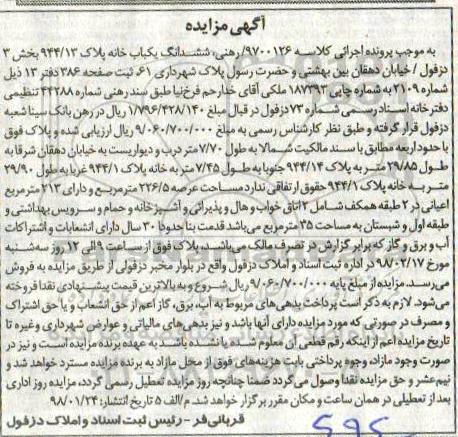 آگهی مزایده
به موجب پرونده اجرائی کلاسه ۹۷۰۰۱۲۶/رهنی، ششدانگ یکباب خانه پلاک ۹۴۴/۱۳ بخش ۳
دزفول / خیابان دهقان بین بهشتی و حضرت رسول پلاک شهرداری ۶۱، ثبت صفحه ۳۸۶ دفتر ۱۳ ذیل
شماره ۲۱۰۹ به شماره چاپی ۱۸۷۳۹۳ ملکی آقای خدارحم فرخ‌نیا طبق سند رهنی شماره ۴۴۲۸۸ تنظیمی
دفترخانه اسناد رسمی شماره ۷۳ دزفول در قبال مبلغ ۱/۷۹۶/۴۲۸/۱۴۰ ریال در رهن بانک سینا شعبه
دزفول قرار گرفته و طبق نظر کارشناس رسمی به مبلغ ۹/۰۶۰/۷۰۰/۰۰۰ ریال ارزیابی شده و پلاک فوق
با حدود اربعه مطابق با سند مالکیت شمالا به طول ۷/۷۰ متر درب و دیواریست به خیابان دهقان شرقا به
طول ۲۹/۸۵ متر به پلاک ۹۴۴/۱۴ جنوبا به طول ۷/۴۵ متر به خانه پلاک ۹۴۴/۱ غربا به طول ۲۹/۹۰
متر به خانه پلاک ۹۴۴/۱ حقوق ارتفاقی ندارد مساحت عرصه ۲۲۶/۵ مترمربع و دارای ۲۱۳ مترمربع
اعیانی در ۲ طبقه همکف شامل ۲ اتاق خواب و هال و پذیرائی و آشپزخانه و حمام و سرویس بهداشتی و
طبقه اول و شبستان به مساحت ۳۵ مترمربع می‌باشد قدمت بنا حدودا ۳۰ سال دارای انشعابات و اشتراکات
آب و برق و گاز که برابر گزارش در تصرف مالک می‌باشد، پلاک فوق از ساعت ۹ الی ۱۲ روز سه‌شنبه
مورخ ۹۸/۰۲/۱۷ در اداره ثبت اسناد و املاک دزفول واقع در بلوار مخبر دزفولی از طریق مزایده به فروش
می‌رسد. مزایده از مبلغ پایه ۹/۰۶۰/۷۰۰/۰۰۰ ریال شروع و به بالاترین قیمت پیشنهادی نقدا فروخته
می‌شود. لازم به ذکر است پرداخت بدهی‌های مربوط به آب، برق، گاز اعم از حق انشعاب و یا حق اشتراک
و مصرف در صورتی که مورد مزایده دارای آنها باشد و نیز بدهی‌های مالیاتی و عوارض شهرداری و غیره تا
تاریخ مزایده اعم از اینکه رقم قطعی آن معلوم شده یا نشده باشد به عهده برنده مزایده است و نیز در
صورت وجود مازاد، وجوه پرداختی بابت هزینه‌های فوق از محل مازاد به برنده مزایده مسترد خواهد شد و
نیم عشر و حق مزایده نقدا وصول می‌گردد ضمنا چنانچه روز مزایده تعطیل رسمی گردد، مزایده روز اداری
بعد از تعطیلی در همان ساعت و مکان مقرر برگزار خواهد شد. م/الف ۵ تاریخ انتشار: ۹۸/۰۱/۲۴
قربانی فر - رئیس ثبت اسناد و املاک دزفول